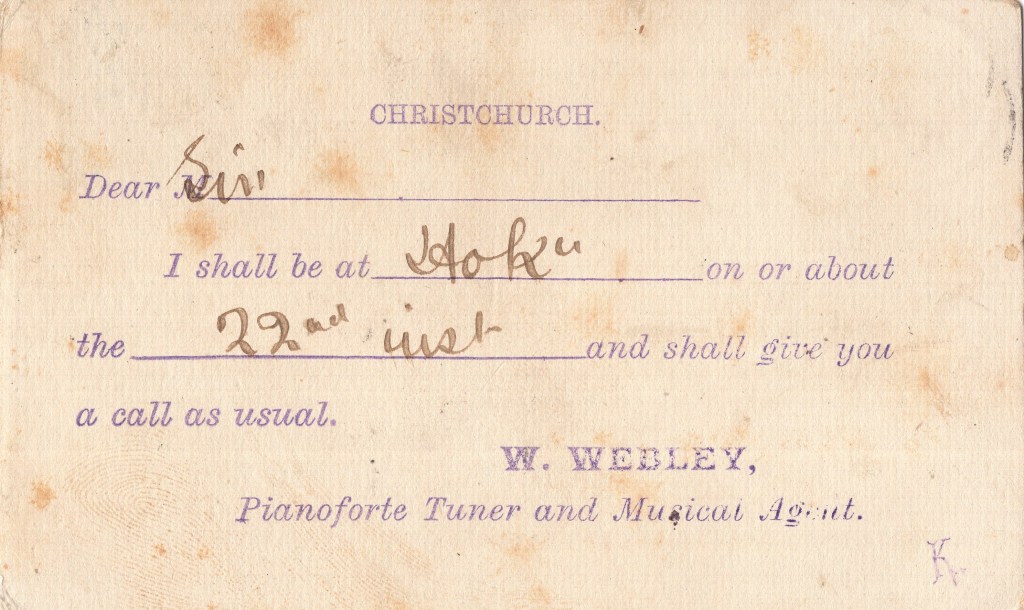 CHRISTCHURCH.
Dear M Sir
I shall be at Hok^a on or about
the 22nd inst and shall give you
a call as usual.
W. WEBLEY,
Pianoforte Tuner and Musical Agent.
K.